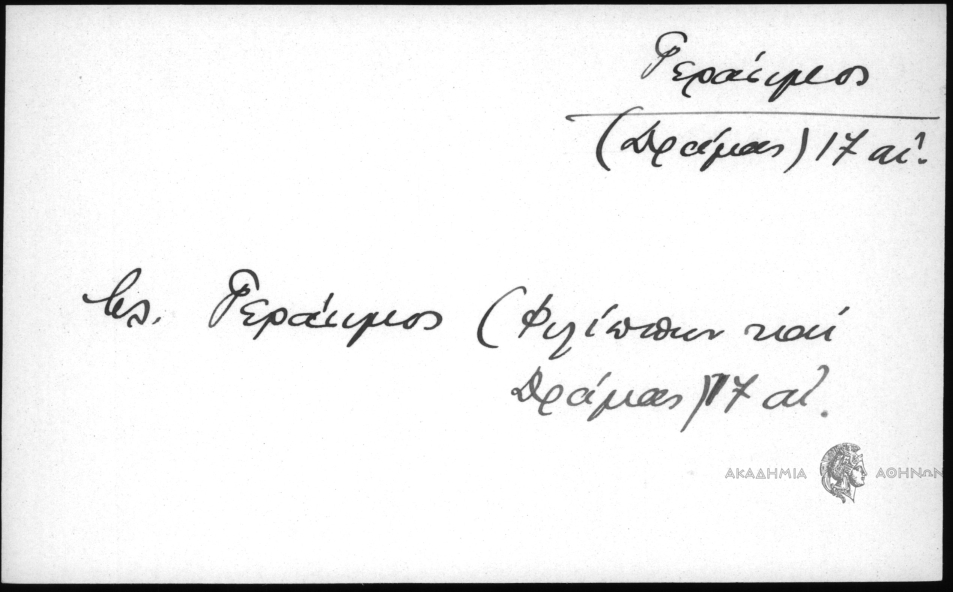 Γεράσιμος
(Δράμας) 17 αἰ.
βλ. Γεράσιμος (Φιλίππων καί
Δράμας) 17 αἰ.
ΑΚΑΔΗΜΙΑ ΑΘΗΝΩΝ